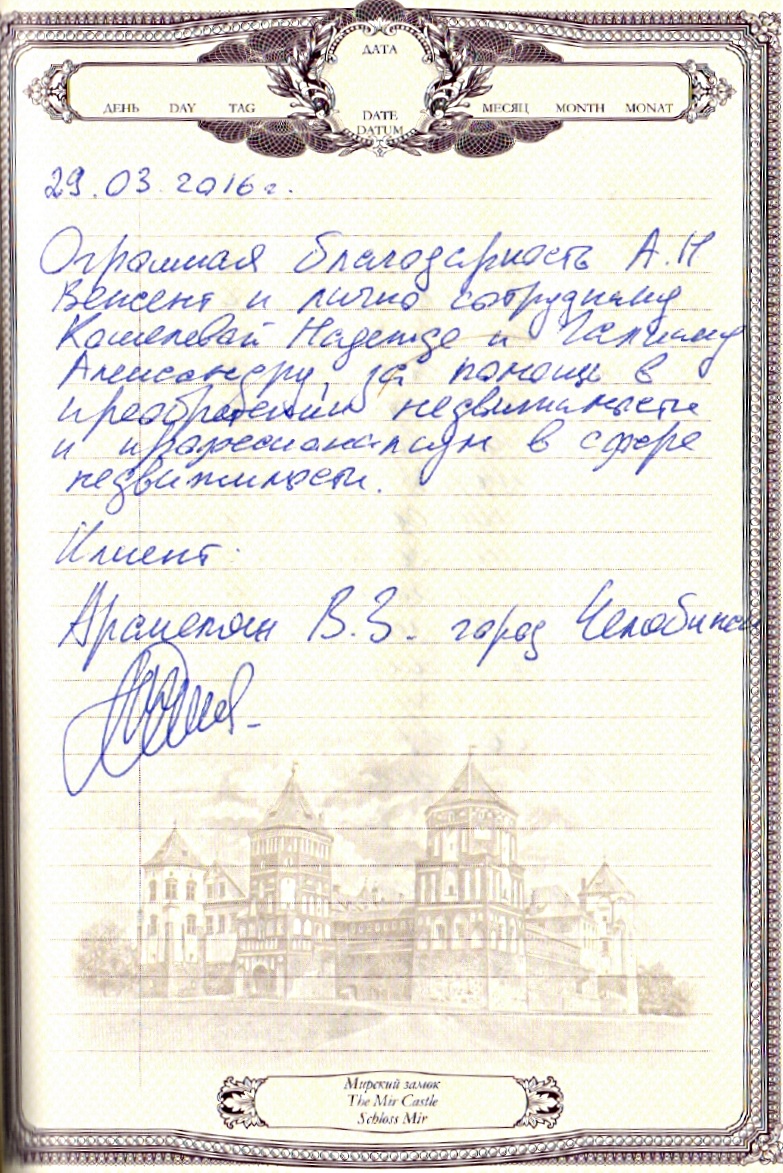 ДАТА
ДЕНЬ DAY TAG
DATE
DATUM
МЕСЯЦ MONTH MONAT
29.03.2016г.
Огромная благодарность А.Н
Венсент и лично сотруднику
Кошелевой Надежде и
Александру, за помощь в
преобретении недвижимости
и професионализм в сфере
недвижимости.
Клиент.
В.З. город Челябинск
Мирский замок
The Mir Castle
Schloss Mir